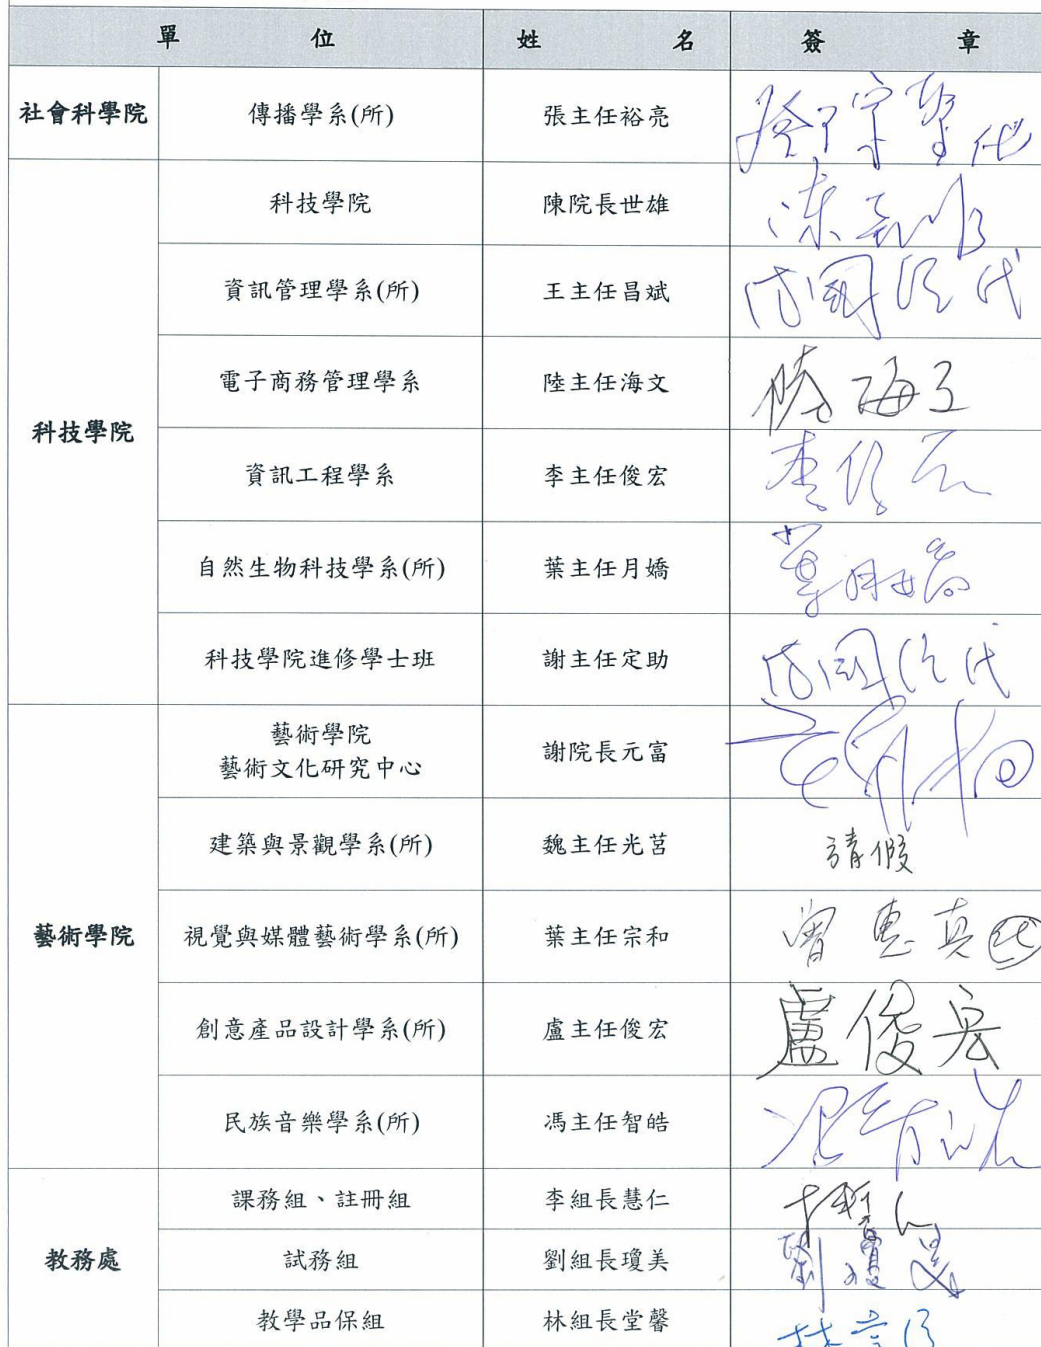 單位 姓名 簽章
社會科學院 傳播學系(所) 張主任裕亮 代
科技學院 陳院長世雄
資訊管理學系(所) 王主任昌斌 代
電子商務管理學系 陸主任海文 陸海文
科技學院 資訊工程學系 李主任俊宏 李俊宏
自然生物科技學系(所) 葉主任月嬌 葉月嬌
科技學院進修學士班 謝主任定助 代
藝術學院
藝術文化研究中心 謝院長元富
建築與景觀學系(所) 魏主任光莒 請假
藝術學院 視覺與媒體藝術學系(所) 葉主任宗和 曾惠真代
創意產品設計學系(所) 盧主任俊宏 盧俊宏
民族音樂學系(所) 馮主任智皓 馮智皓
課務組、註冊組 李組長慧仁 李慧仁
教務處 試務組 劉組長瓊美 劉瓊美
教學品保組 林組長堂馨